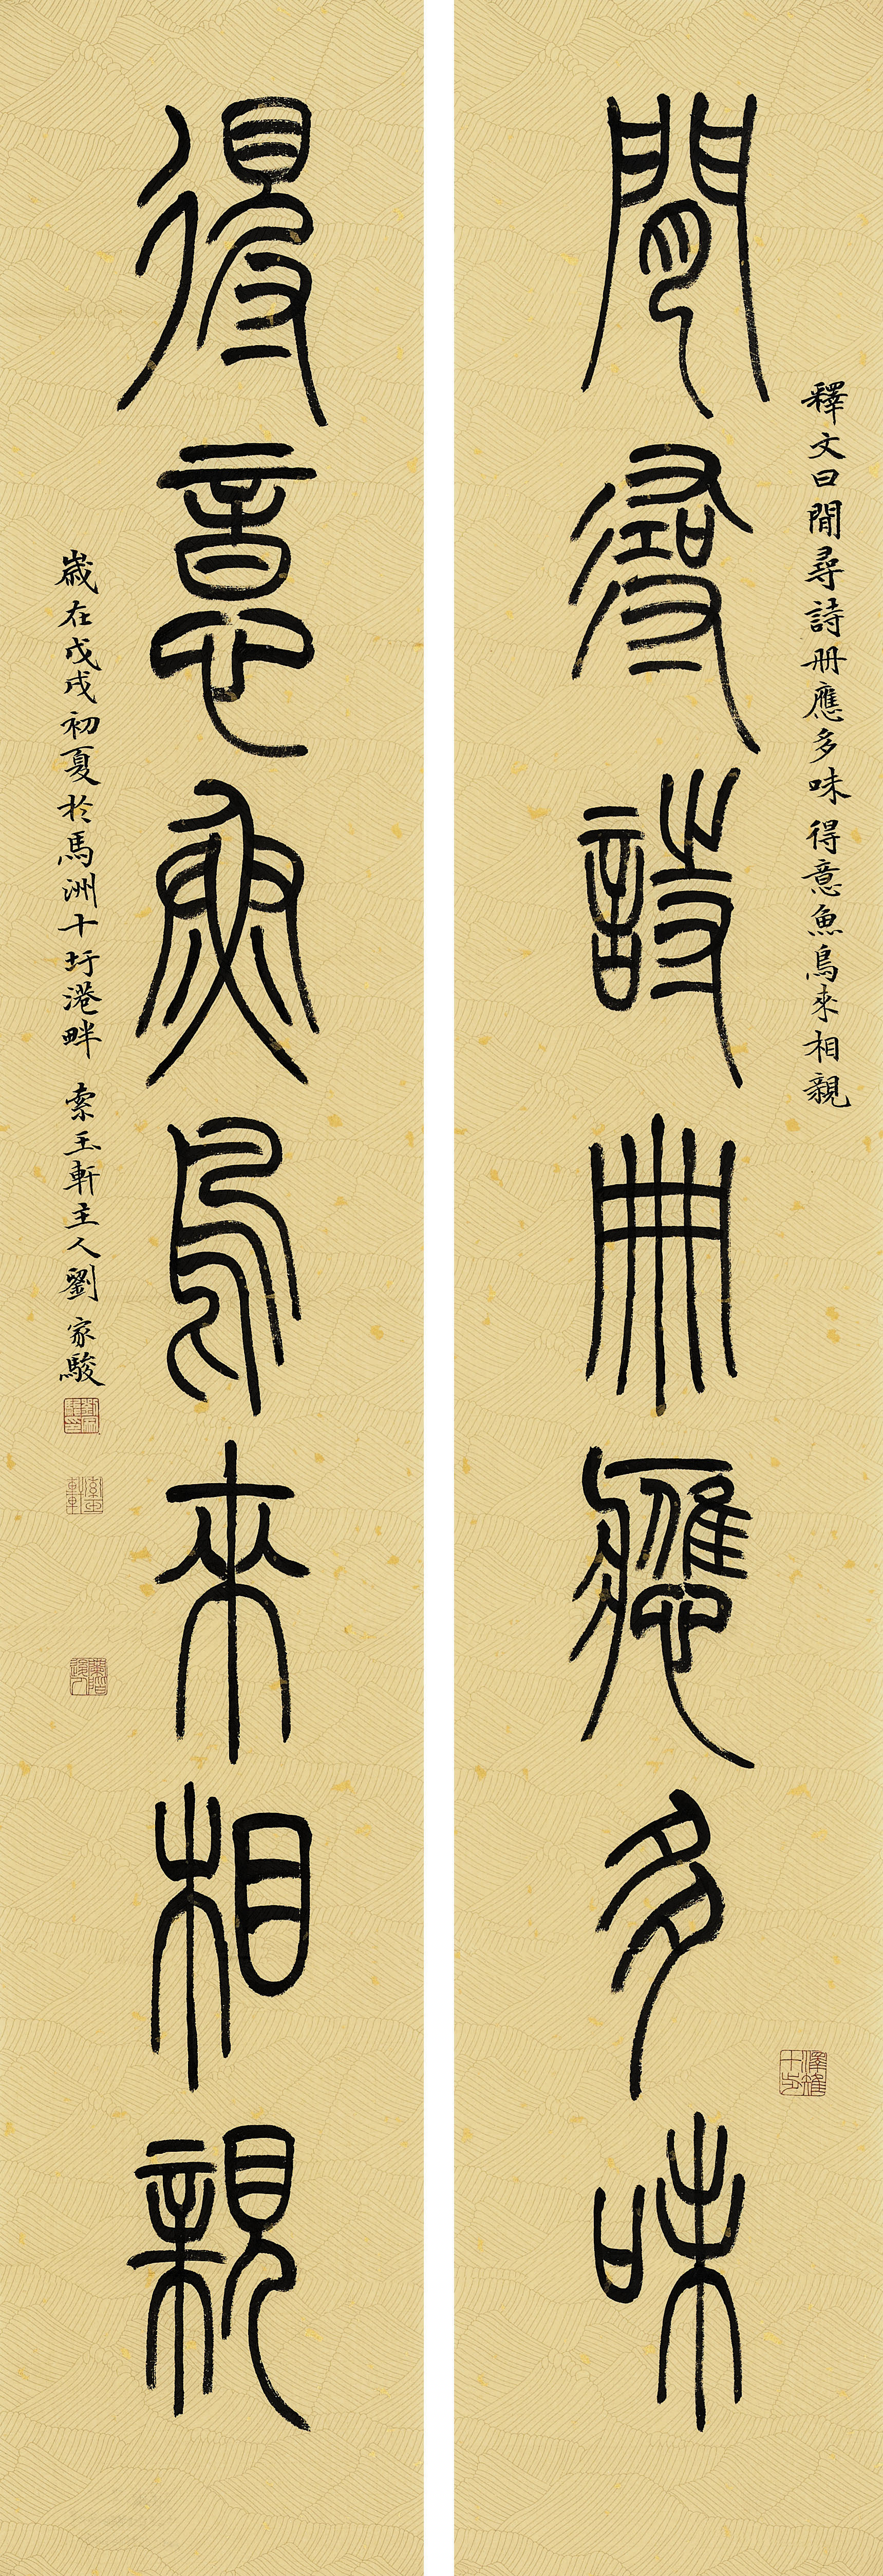 閒尋詩册應多味
釋文曰閒尋詩册應多味得意魚鳥來相親
得意魚鳥來相親
歲在戊戌初夏於馬洲十圩港畔 索玉軒主人劉家駿